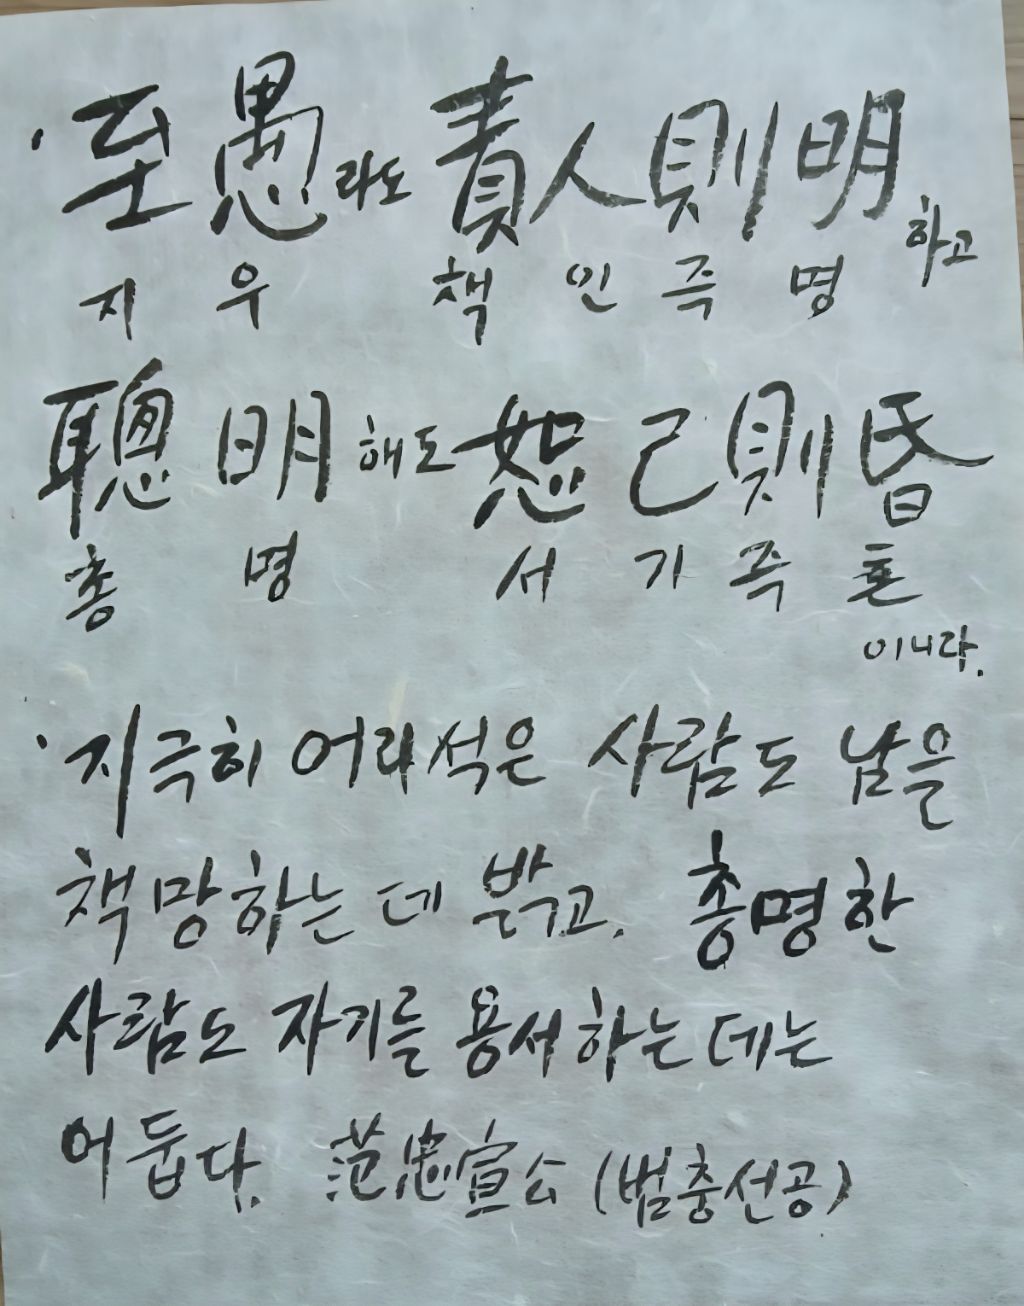 · 至愚라도 責人則明하고
지우 책인즉명
聰明해도 恕己則昏
총명 서기즉혼
이니라.
· 지극히 어리석은 사람도 남을
책망하는 데 밝고. 총명한
사람도 자기를 용서하는데는
어둡다. 范忠宣公 (범충선공)